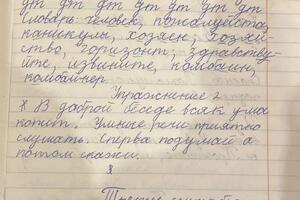 дт дт дт дт дт дт
словарь человек, пожалуйста,
каникулы, хозяин, хозяй-
ство, горизонт, здравству-
йте, извините, комбайн,
комбайнер.
Упражнение 2
В доброй беседе всяк ума
копит. Умные речи приятно
слушать. Сперва подумай а
потом скажи.